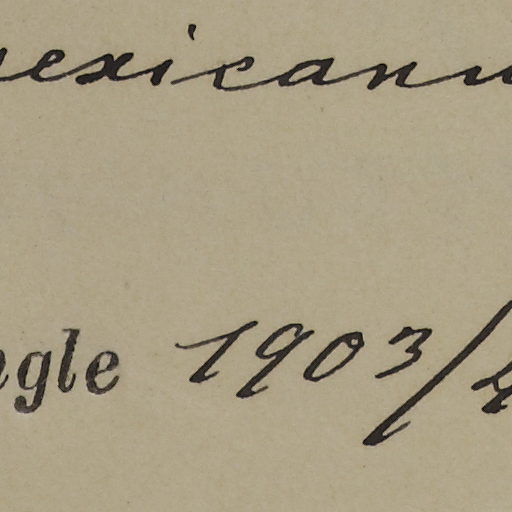 exicanu
ngle 1903/